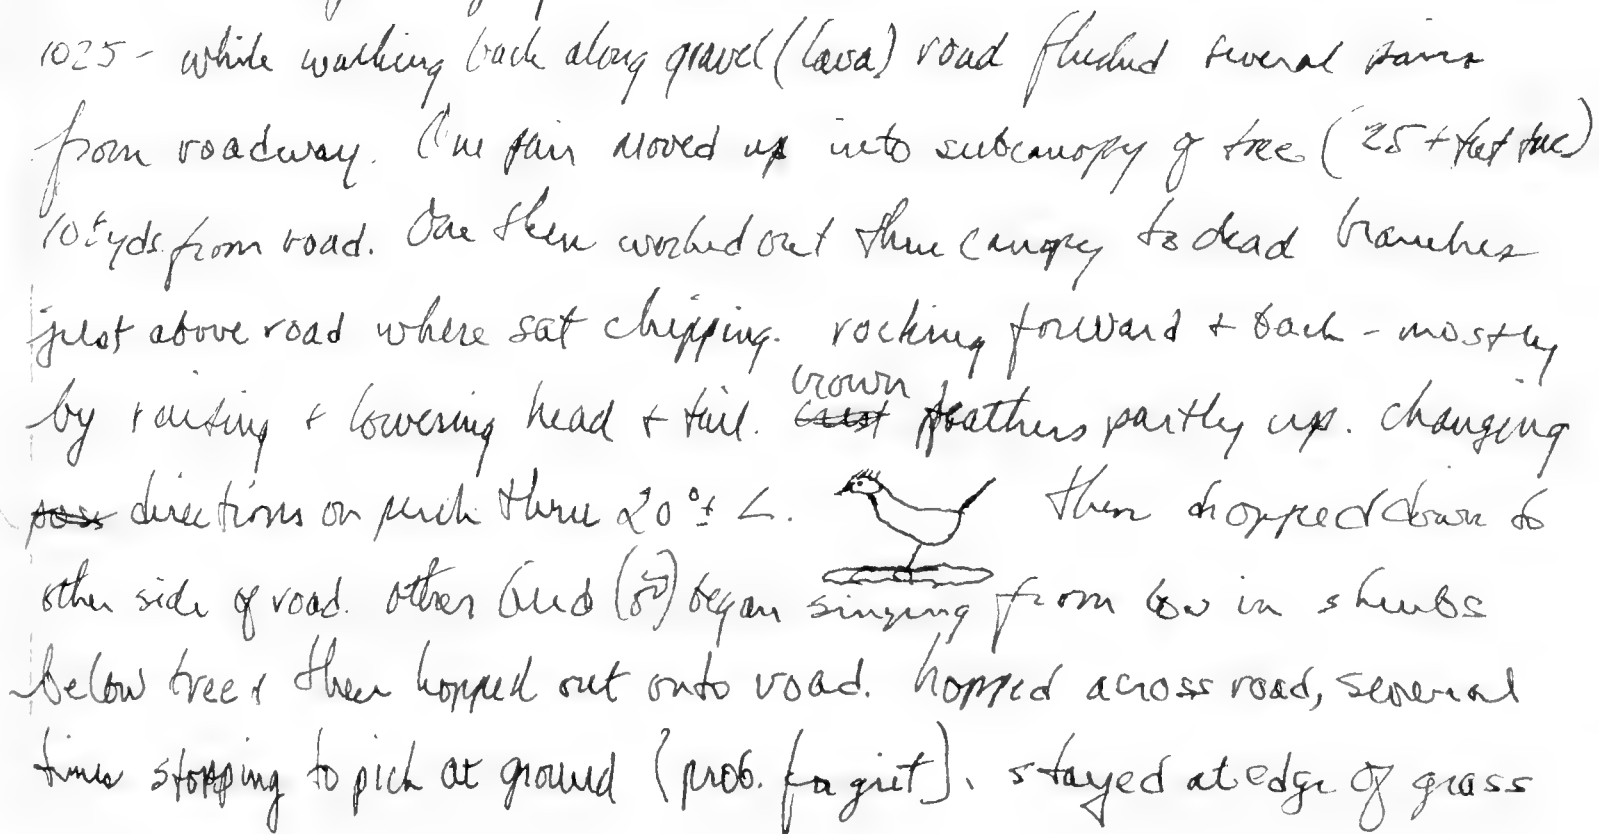 1025 - while walking back along gravel (lava) road flushed several pairs
from roadway. One pair moved up into subcanopy of tree (25 + feet tree)
10± yds. from road. One then worked out thru canopy to dead branches
just above road where sat chipping. rocking forward + back - mostly
by raising + lowering head + tail. crown feathers partly up. changing
directions on perch thru 20°± <. then dropped down to
other side of road. other bird began singing from low in shrubs
below tree & then hopped out onto road. hopped across road, several
times stopping to pick at ground (prob. for grit). stayed at edge of grass